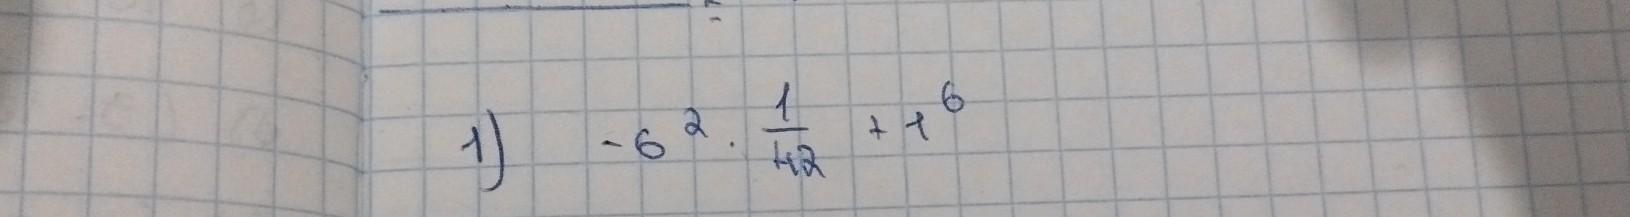 1) -6² · 1/42 + 1⁶